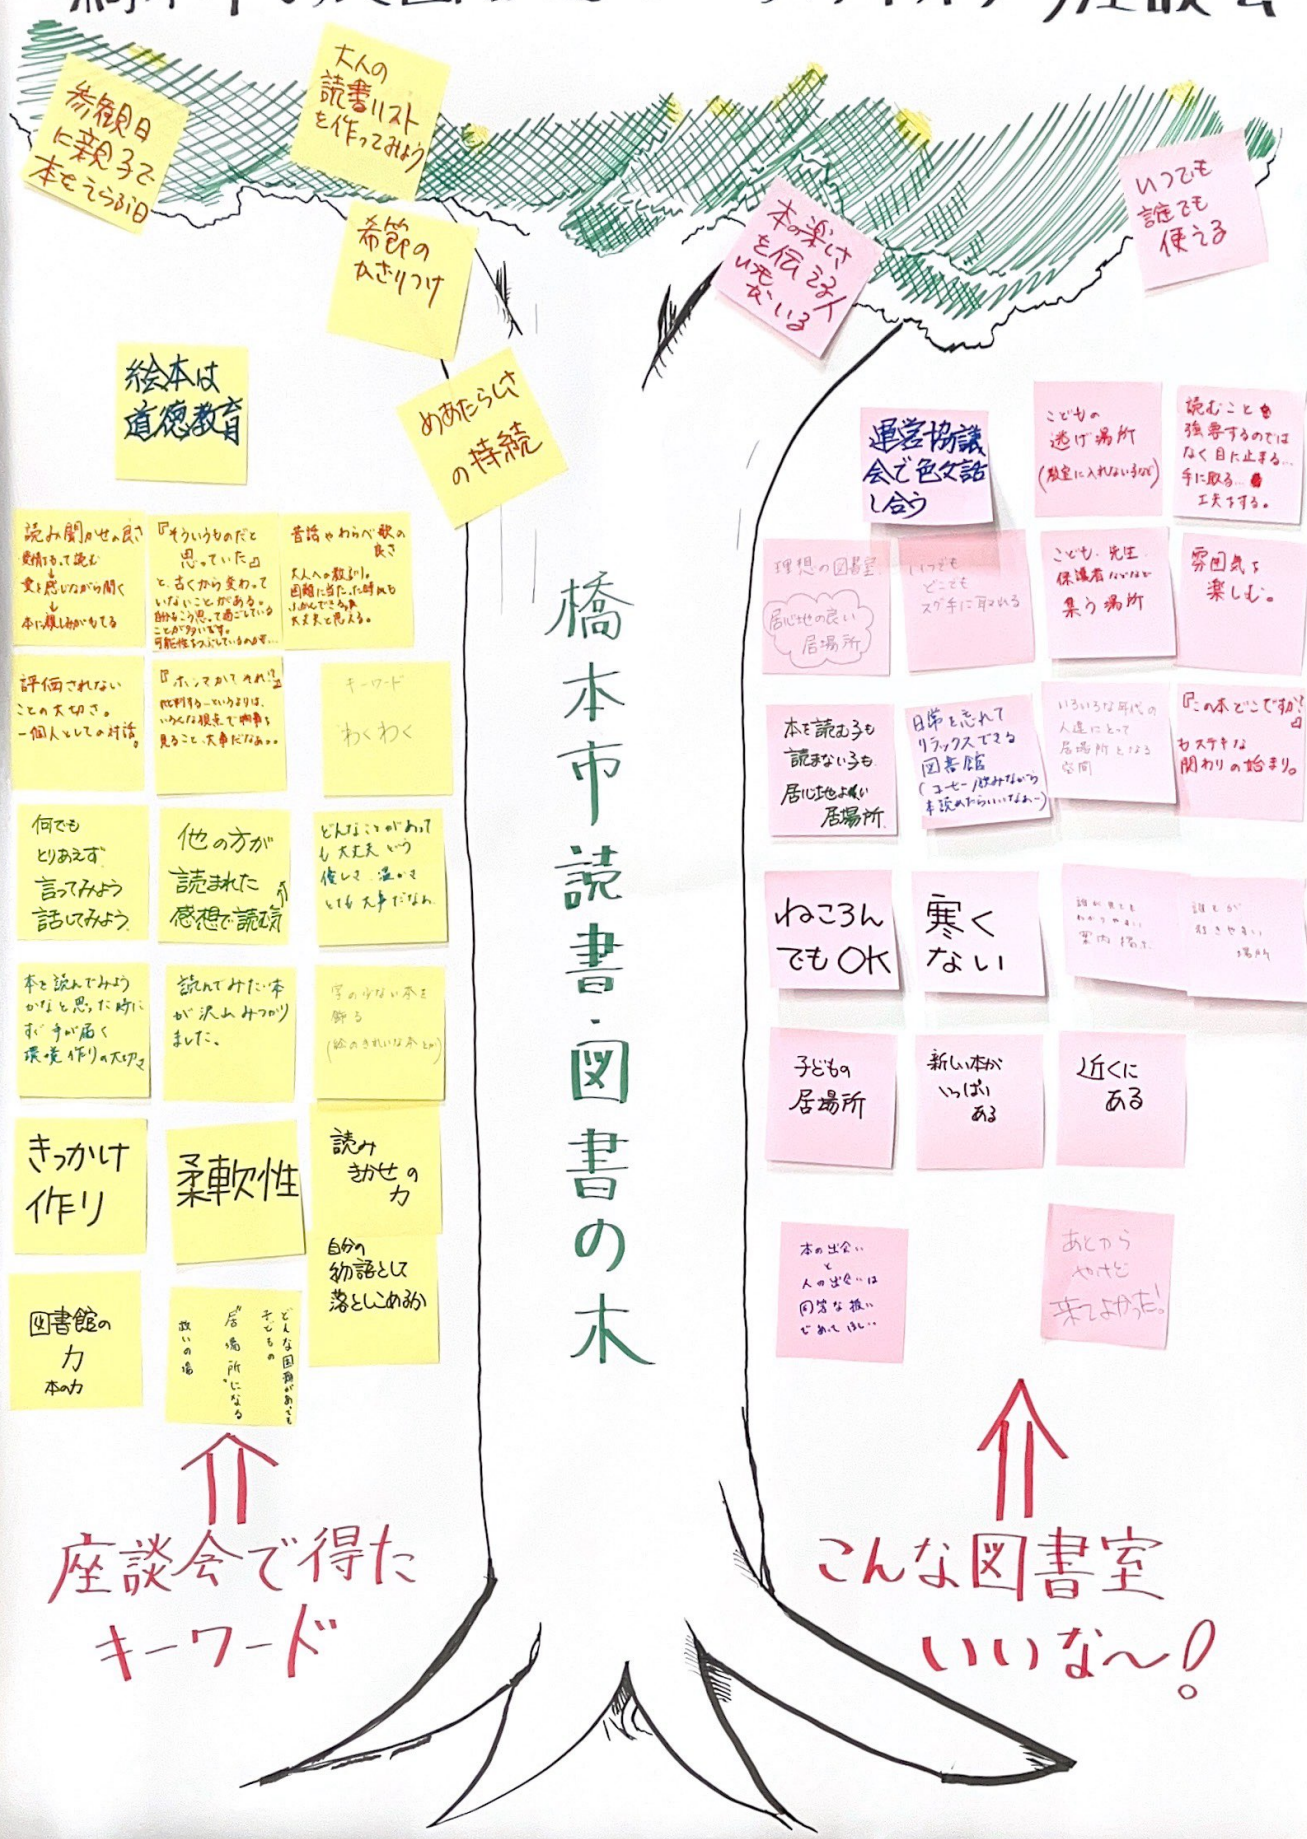 参観日
に親子で
本をえらぶ日
大人の
読書リスト
を作ってみよう
季節の
かざりつけ
めあたらしさ
の持続
絵本は
道徳教育
本の楽しさ
を伝える人
がいる
いつでも
誰でも
使える
橋本市読書・図書の木
読み聞かせの良さ
愛情もって読む
↓
愛を感じながら聞く
↓
本に親しみがもてる
『そういうものだと
思っていた』
と、古くから変わって
いないことがある。
自分もこう思って過ごしている
ことが多いです。
可能性をつぶしているのかも…
昔話やわらべ歌の
良さ
大人への教えり。
困難に当たった時でも
大丈夫と思える。
評価されない
ことの大切さ。
一個人としての対話。
『ホンマかてそれ!?』
批判する…というよりは、
いろんな視点で物事を
見ること、大事だなぁ。。
キーワード
わくわく
何でも
とりあえず
言ってみよう
話してみよう。
他の方が
読まれた
感想で読む気↑
どんなことがあって
も大丈夫という
優しさ、温かさ
とても大事だなぁ
本を読んでみよう
かなと思った時に
すぐ手が届く
環境作りの大切さ
読んでみたい本
が沢山みつかり
ました。
字の少ない本を
飾る
(絵のきれいな本とか)
きっかけ
作り
柔軟性
読み
きかせの
力
自分の
物語として
落としこめるか
図書館の
力
本の力
どんな困難があっても
子どもの
"居場所"になる
救いの場
座談会で得た
キーワード
運営協議
会で色々話
し合う
こどもの
逃げ場所
(教室に入れない子など)
読むことを
強要するのでは
なく目に止まる…
手に取る…
工夫をする。
理想の図書室
居心地の良い
居場所
いつでも
どこでも
スグ手に取れる
こども、先生、
保護者などなど
集う場所
雰囲気を
楽しむ。
本を読む子も
読まない子も
居心地よい
居場所
日常を忘れて
リラックスできる
図書館
(コーヒー飲みながら
本読めたらいいなぁ〜)
いろいろな年代の
人達にとって
居場所となる
空間
『この本どこですか?』
もステキな
関わりの始まり。
ねころん
でもOK
寒く
ない
誰が見ても
わかりやすい
案内指示
誰もが
行きやすい
場所
子どもの
居場所
新しい本が
いっぱい
ある
近くに
ある
本の出会い
と
人の出会いは
同等な扱い
であってほしい
あとから
やけど
来てよかった!
こんな図書室
いいな〜!